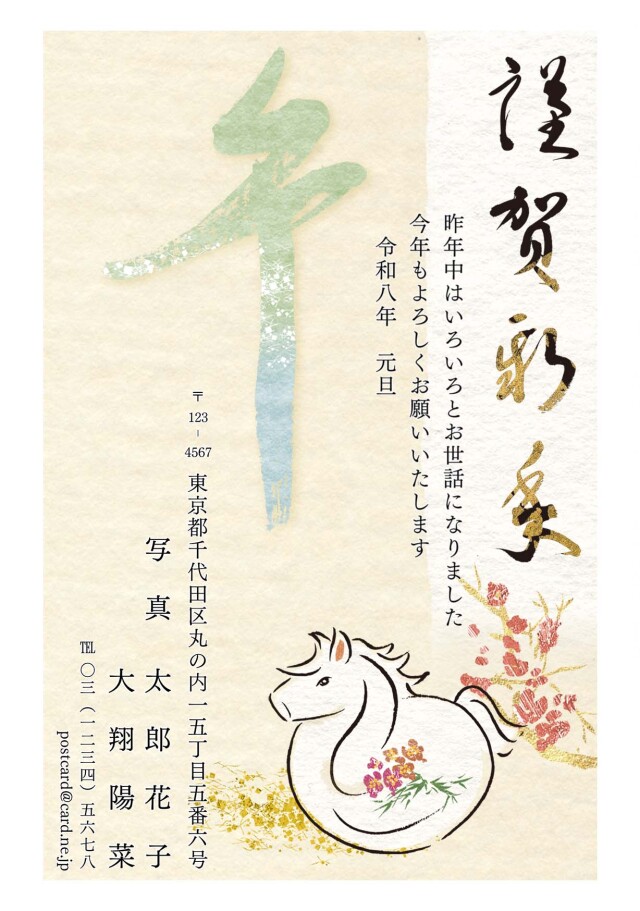 謹賀新年
昨年中はいろいろとお世話になりました
今年もよろしくお願いいたします
令和八年　元旦
午
〒123-4567
東京都千代田区丸の内一五丁目五番六号
写真　太郎花子
大翔陽菜
℡〇三（一二三四）五六七八
postcard@card.ne.jp